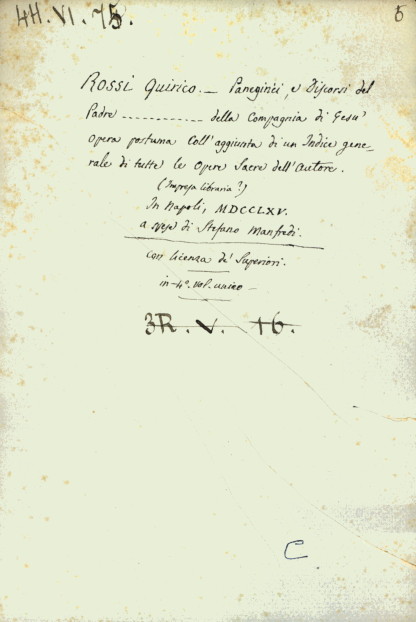 44.VI.75.
5
ROSSI Quirico. — Panegirici, e Discorsi del
Padre ------------- della Compagnia di Gesu'
opera postuma Coll'aggiunta di un Indice gene-
rale di tutte le Opere Sacre dell'autore.
(Impresa libraria?)
In Napoli, MDCCLXV.
a spese di Stefano Manfredi.
con licenza de' Superiori.
in-4°. vol. unico —
3R. V. 16.
C